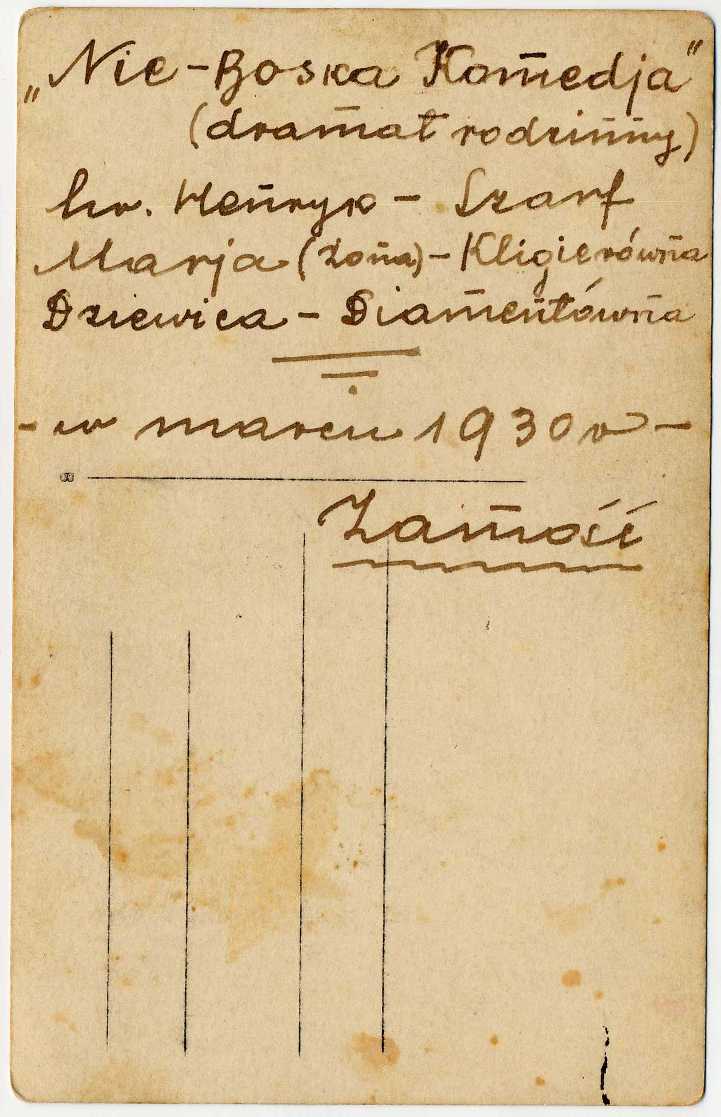 „Nie-Boska Komedja"
(dramat rodzinny)
hr. Henryk - Szarf
Marja (żona) - Kligierówna
Dziewica - Diamentówna
- w marcu 1930 r -
Zamość